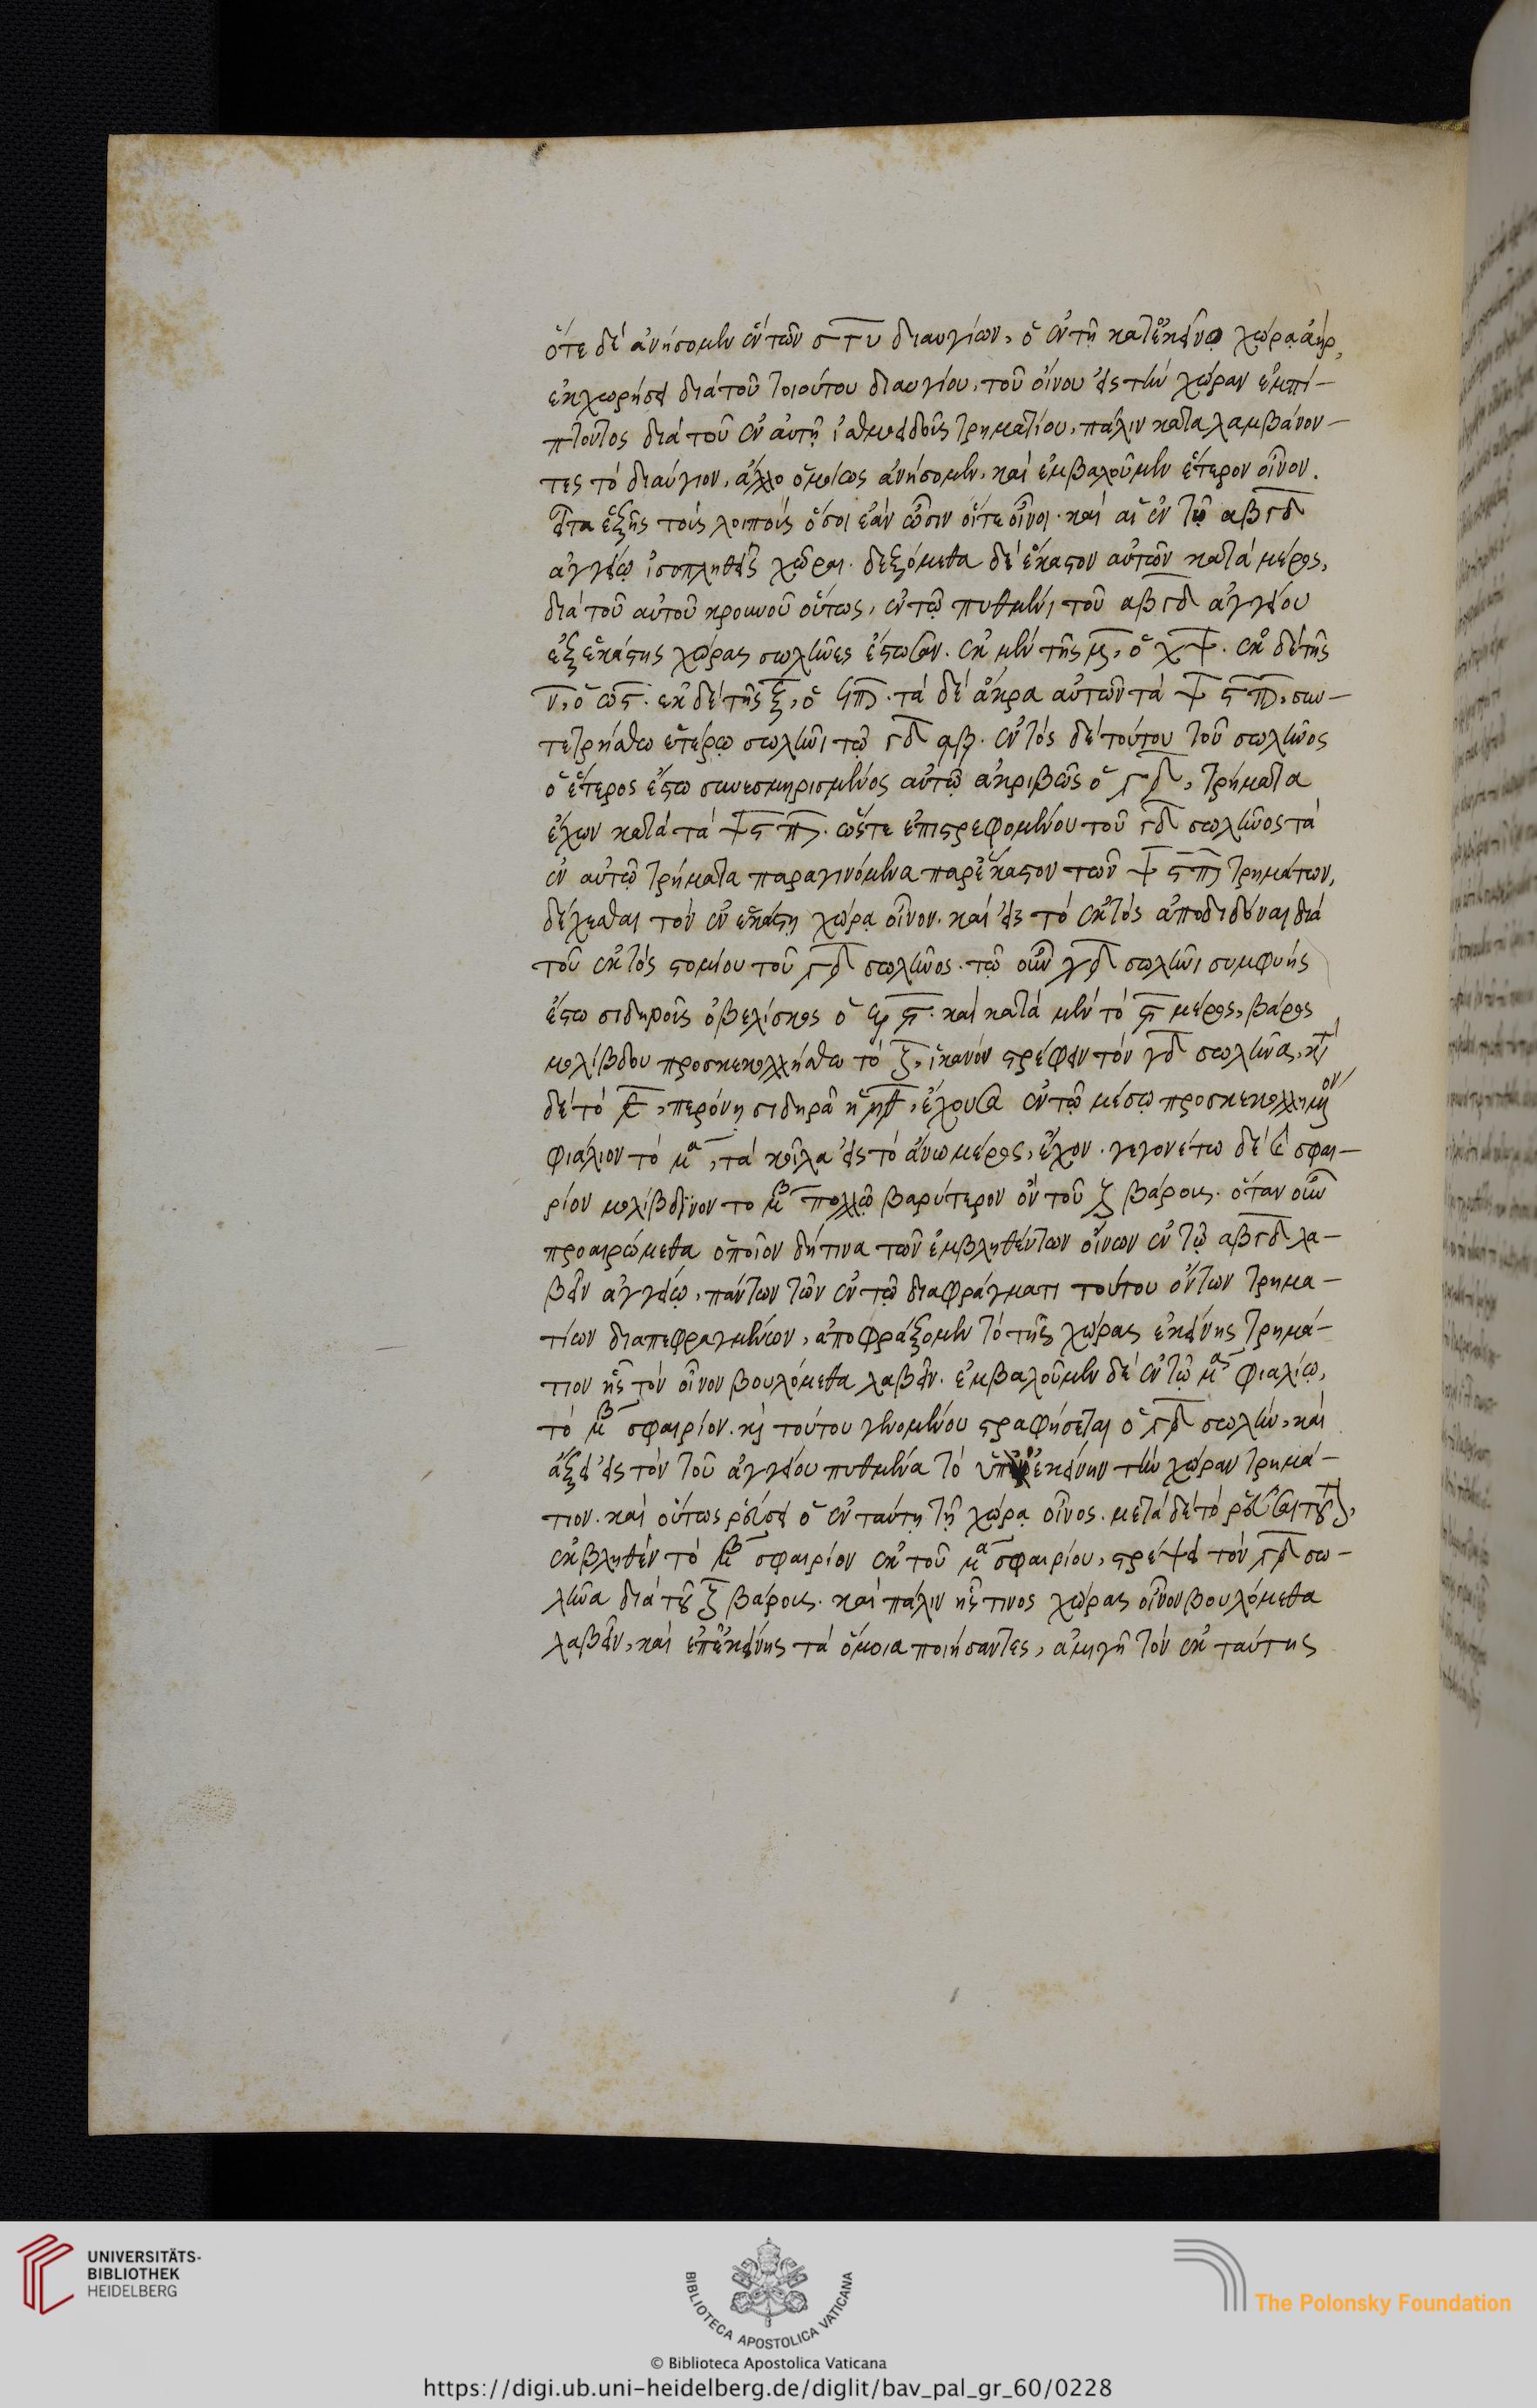 ὅτε δὲ ἀνήσομεν ἓν τῶν στυ διαυγίων, ὁ ἐν τῇ κατ' ἐκεῖνο χώρᾳ ἀὴρ,
ἐκχωρήσει διὰ τοῦ τοιούτου διαυγίου, τοῦ οἴνου εἰς τὴν χώραν ἐμπί-
πτοντος διὰ τοῦ ἐν αὐτῇ ἰσθμοειδοῦς τρηματίου, πάλιν καταλαμβάνον-
τες τὸ διαύγιον, ἄλλο ὁμοίως ἀνήσομεν, καὶ ἐμβαλοῦμεν ἕτερον οἶνον.
εἶτα ἑξῆς τοὺς λοιποὺς ὅσοι ἐὰν ὦσιν οἵτε οἶνοι. καὶ αἱ ἐν τῷ αβγδ
ἀγγείῳ ἰσοπληθεῖς χῶραι. δεξόμεθα δὲ ἕκαστον αὐτῶν κατὰ μέρος,
διὰ τοῦ αὐτοῦ κρουνοῦ οὕτως, ἐν τῷ πυθμένι τοῦ αβγδ ἀγγείου
ἐξ ἑκάστης χώρας σωλῆνες ἔστωσαν. ἐκ μὲν τῆς μ, ὁ χψ. ἐκ δὲ τῆς
ν, ὁ ως. ἐκ δὲ τῆς ξ, ὁ ϟϡ. τὰ δὲ ἄκρα αὐτῶν τὰ ψ ς ϡ, συν-
τετρήσθω ἑτέρῳ σωλῆνι τῷ γδ αβ. ἐντὸς δὲ τούτου τοῦ σωλῆνος
ὁ ἕτερος ἔστω συνεσμηρισμένος αὐτῷ ἀκριβῶς ὁ γδ, τρήματα
ἔχων κατὰ τὰ ψ ς ϡ. ὥστε ἐπιστρεφομένου τοῦ γδ σωλῆνος τὰ
ἐν αὐτῷ τρήματα παραγινόμενα παρ' ἕκαστον τῶν ψ ς ϡ τρημάτων,
δέχεσθαι τὸν ἐν ἑκάστῃ χώρᾳ οἶνον. καὶ εἰς τὸ ἐκτὸς ἀποδιδόναι διὰ
τοῦ ἐκτὸς στομίου τοῦ γδ σωλῆνος. τῷ οὖν γδ σωλῆνι συμφυὴς
ἔστω σιδηροῦς ὀβελίσκος ὁ ες. καὶ κατὰ μὲν τὸ ς μέρος, βάρος
μολίβδου προσκεκολλήσθω τὸ ζ, ἱκανὸν στρέφειν τὸν γδ σωλῆνα, κτ
δὲ τὸ ε, περόνη σιδηρᾶ ἡ ηθ, ἔχουσα ἐν τῷ μέσῳ προσκεκολλημένον
φιάλιον τὸ μα, τὰ κοῖλα εἰς τὸ ἄνω μέρος, ἔχον. γεγονέτω δὲ καὶ σφαι-
ρίον μολίβδινον το μβ πολλῷ βαρύτερον ὂν τοῦ ζ βάρους. ὅταν οὖν
προαιρώμεθα ὁποῖον δήτινα τῶν ἐμβληθέντων οἴνων ἐν τῷ αβγδ λα-
βεῖν ἀγγείῳ, πάντων τῶν ἐν τῷ διαφράγματι τούτου ὄντων τρημα-
τίων διαπεφραγμένων, ἀποφράξομεν τὸ τῆς χώρας ἐκείνης τρημά-
τιον ἧς τὸν οἶνον βουλόμεθα λαβεῖν. ἐμβαλοῦμεν δὲ ἐν τῷ μα φιαλίῳ,
τὸ μβ σφαιρίον. κ τούτου γενομένου στραφήσεται ὁ γδ σωλὴν, καὶ
ἄξει εἰς τὸν τοῦ ἀγγείου πυθμένα τὸ ὑπ' ἐκείνην τὴν χώραν τρημά-
τιον. καὶ οὕτως ῥεύσει ὁ ἐν ταύτῃ τῇ χώρᾳ οἶνος. μετὰ δὲ τὸ ῥεῦσαι τοῦτ,
ἐκβληθὲν τὸ μβ σφαιρίον ἐκ τοῦ μα σφαιρίου, στρέψει τὸν γδ σω-
λῆνα διὰ τοῦ ζ βάρους. καὶ πάλιν ἧς τινος χώρας οἶνον βουλόμεθα
λαβεῖν, καὶ ἐπ' ἐκείνης τὰ ὅμοια ποιήσαντες, ἀμιγῆ τὸν ἐκ ταύτης
UNIVERSITÄTS-
BIBLIOTHEK
HEIDELBERG
BIBLIOTECA APOSTOLICA VATICANA
The Polonsky Foundation
© Biblioteca Apostolica Vaticana
https://digi.ub.uni-heidelberg.de/diglit/bav_pal_gr_60/0228